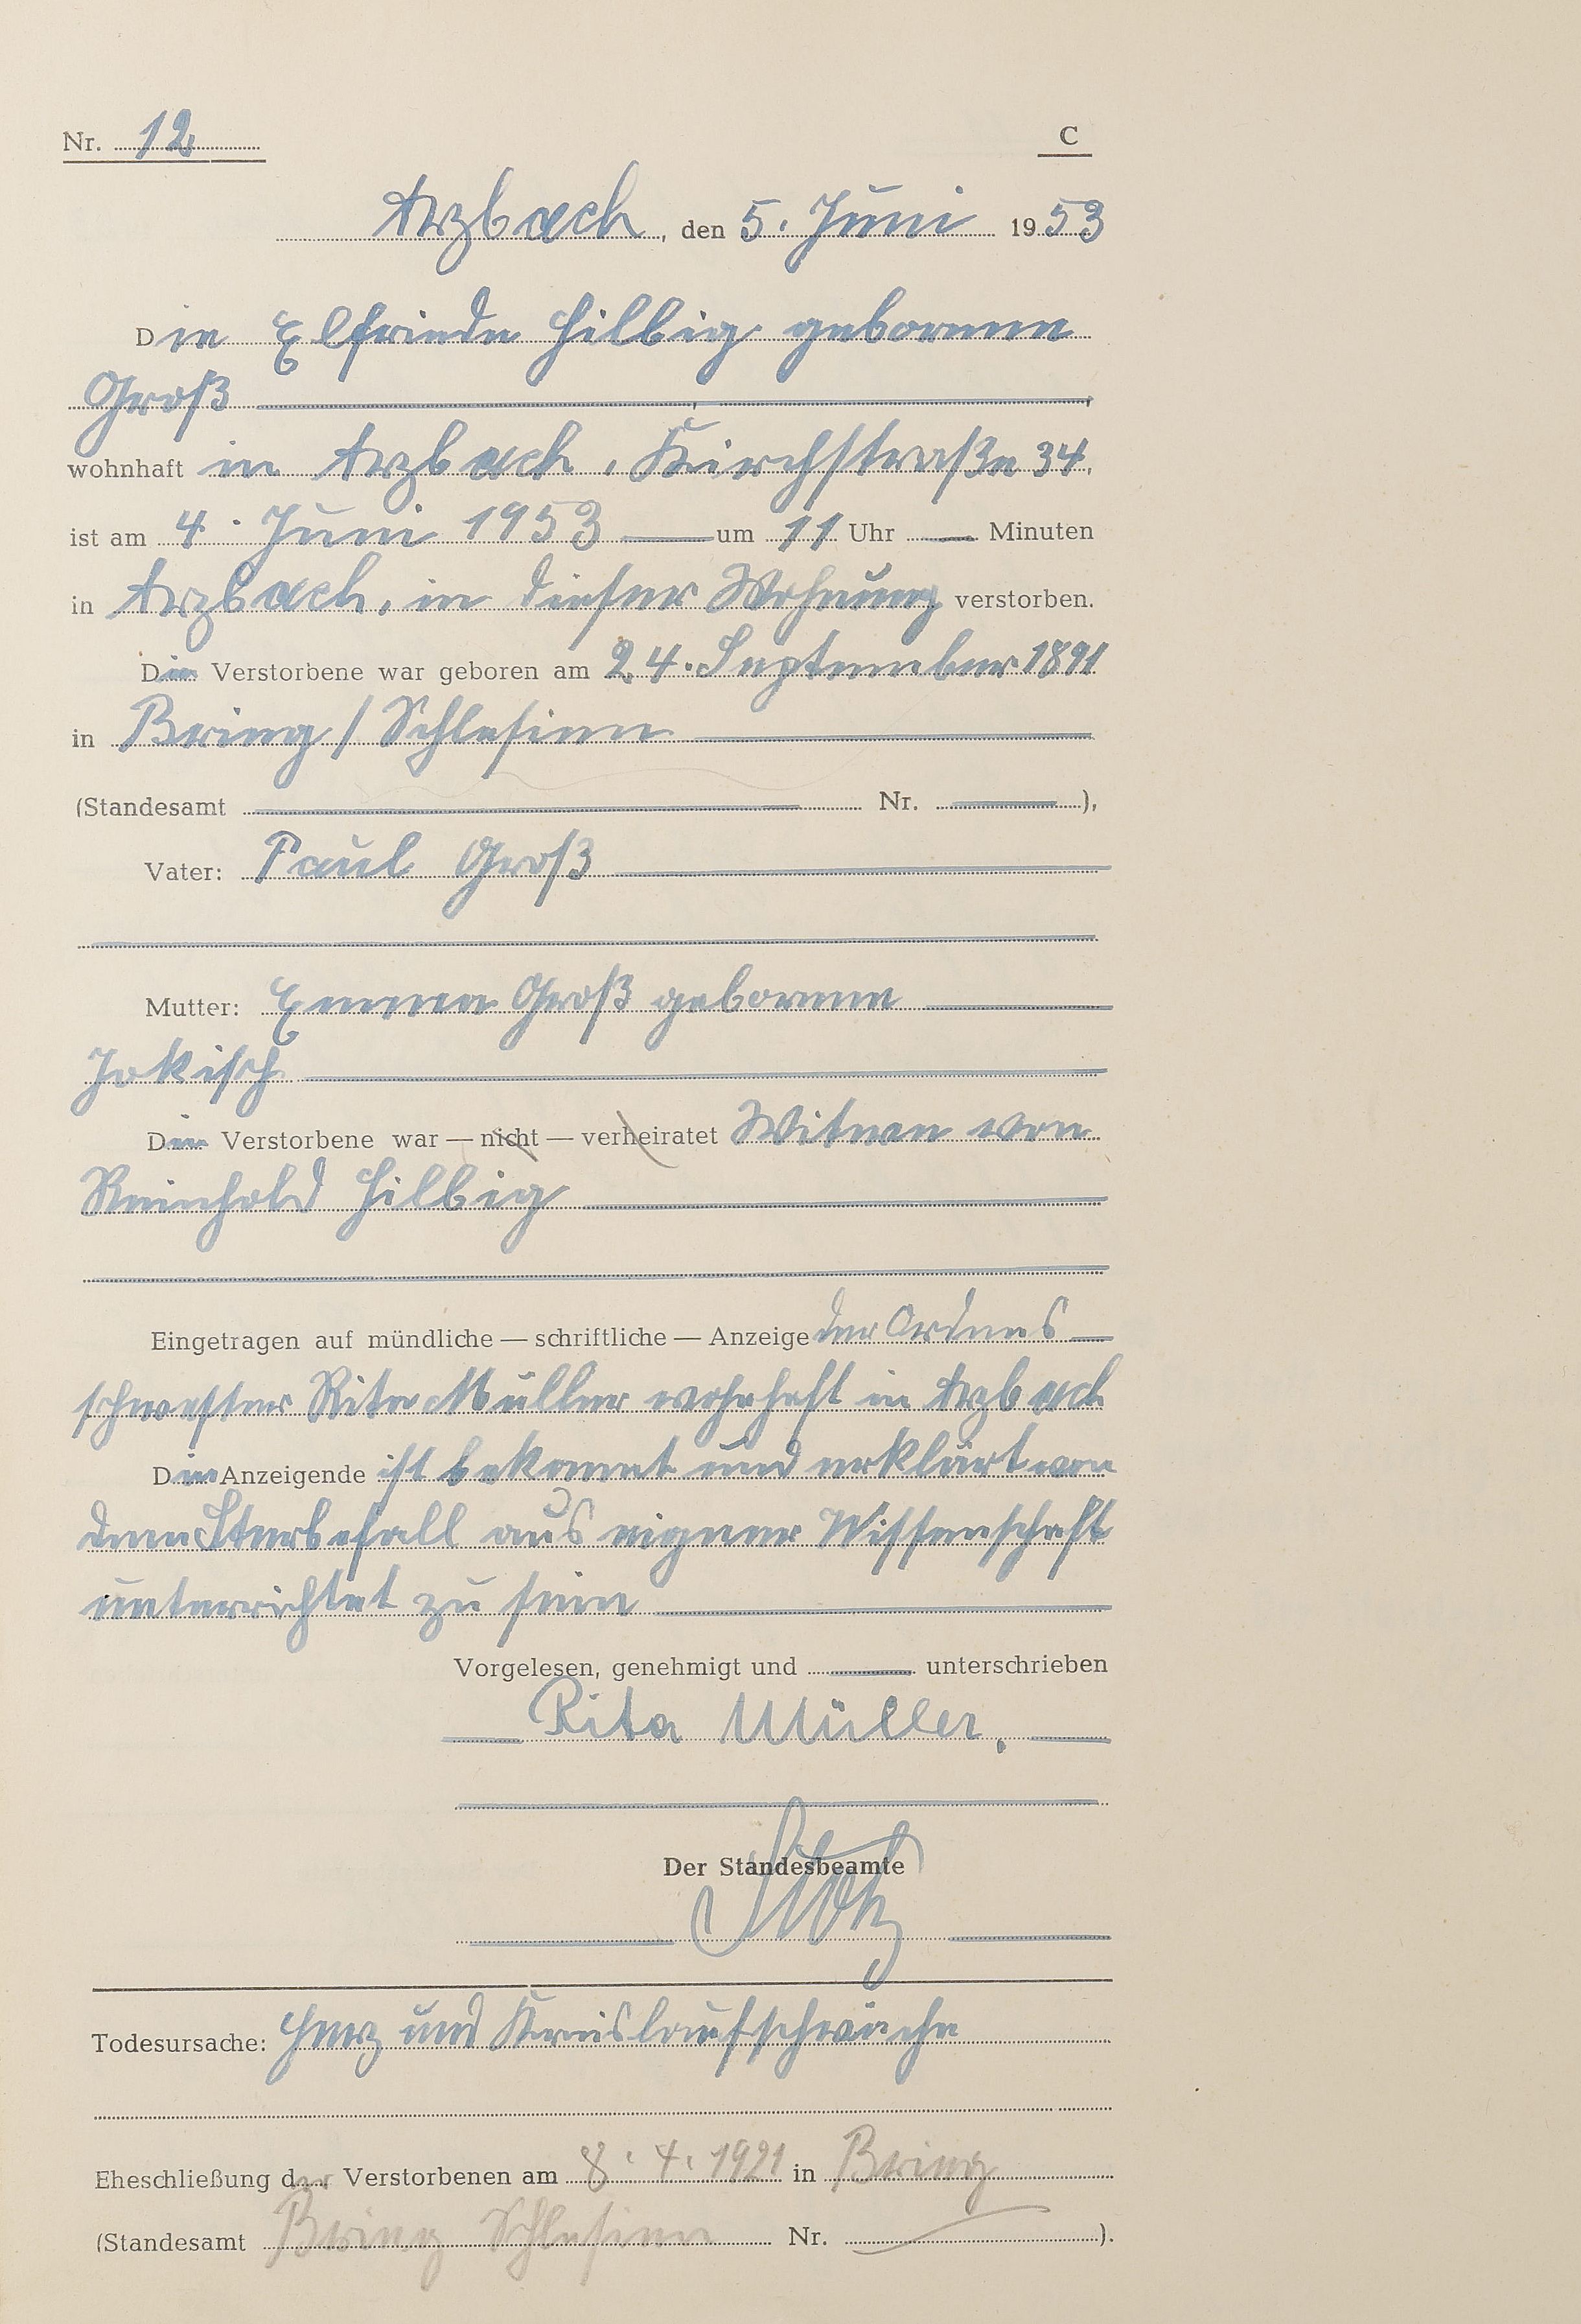 Nr. 12 C
Arzbach, den 5. Juni 1953
Die Elfriede Hilbig geborene
Groß,
wohnhaft in Arzbach, Kirchstraße 34,
ist am 4. Juni 1953 um 11 Uhr — Minuten
in Arzbach, in dieser Wohnung verstorben.
Die Verstorbene war geboren am 24. September 1891
in Brieg / Schlesien
(Standesamt Nr. ),
Vater: Paul Groß
Mutter: Emma Groß geborene
Jokisch
Die Verstorbene war — nicht — verheiratet Witwe von
Reinhold Hilbig
Eingetragen auf mündliche — schriftliche — Anzeige der Ordens
schwester Rita Müller wohnhaft in Arzbach
Die Anzeigende ist bekannt und erklärt von
dem Sterbefall aus eigener Wissenschaft
unterrichtet zu sein
Vorgelesen, genehmigt und — unterschrieben
Rita Müller.
Der Standesbeamte
Todesursache: Herz und Kreislaufschwäche
Eheschließung der Verstorbenen am 8. 4. 1921 in Brieg
(Standesamt Brieg Schlesien Nr. — ).